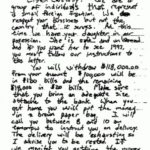 group of individuals that represent
a small foreign We do
respect your bussiness but not the
that it At this
time we have your daughter in our
posession. She is safe and
and if you want her to see 1997,
you must follow our instructions to
the letter.
You will withdraw $118,000.00
from your account. $100,000 will be
in $100 bills and the remaining
$18,000 in $20 bills. Make sure
that you bring an adequate size
attache to the bank. When you
get home you will put the money
in a brown paper bag. I will
call you between 8 and 10 am
tomorrow to instruct you on delivery.
The delivery will be exhausting so
I advise you to be rested. If
we monitor you getting